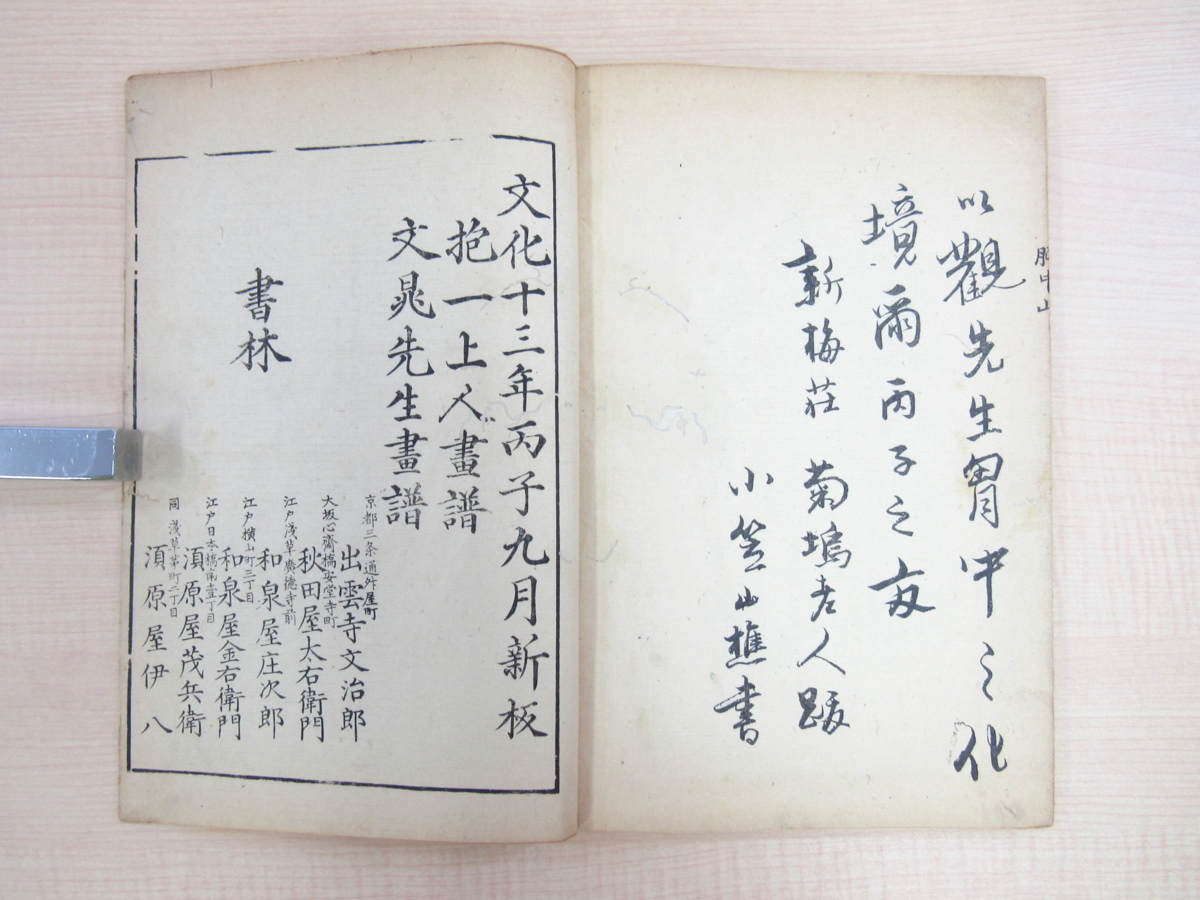 胸中山
以觀先生胷中之化
境爾丙子之夜
新梅莊菊塢老人跋
小笠山樵書
文化十三年丙子九月新板
抱一上人畫譜
文晁先生畫譜
書林
京都三条通舛屋町
出雲寺文治郎
大坂心齋橋安堂寺町
秋田屋太右衛門
江戸浅草廣徳寺前
和泉屋庄次郎
江戸横山町三丁目
和泉屋金右衛門
江戸日本橋南壹丁目
須原屋茂兵衛
同浅草茅町二丁目
須原屋伊八